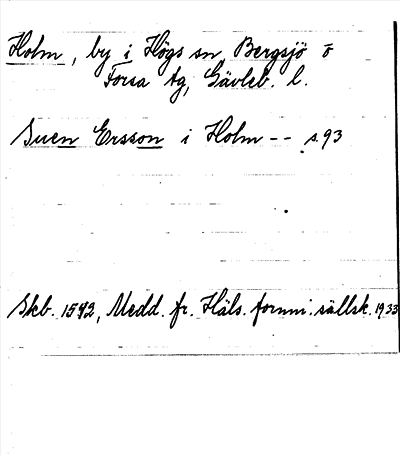 Holm, by i Högs sn, Bergsjö o
Forsa tg, Gävleb. l.
Suen Ersson i Holm -- s. 93
Skb. 1592, Medd. fr. Häls. fornmi. sällsk. 1933